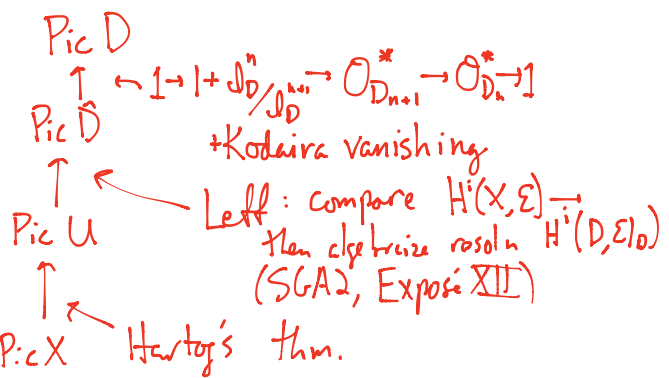 Pic D
1 → 1 + I_D^n / I_D^{n+1} → O*_{D_{n+1}} → O*_{D_n} → 1
Pic D̂
+ Kodaira vanishing
Leff : compare H^i(X, E) → H^i(D, E|_D)
Pic U
then algebraize resoln
(SGA2, Exposé XII)
Pic X
Hartog's thm.